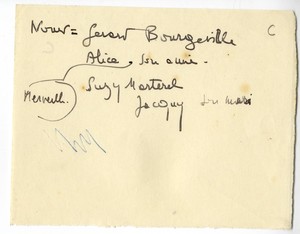 Nous = Gerard Bourgeville
C
Alice, son amie.
Suzy Marterel
Jacquy son mari